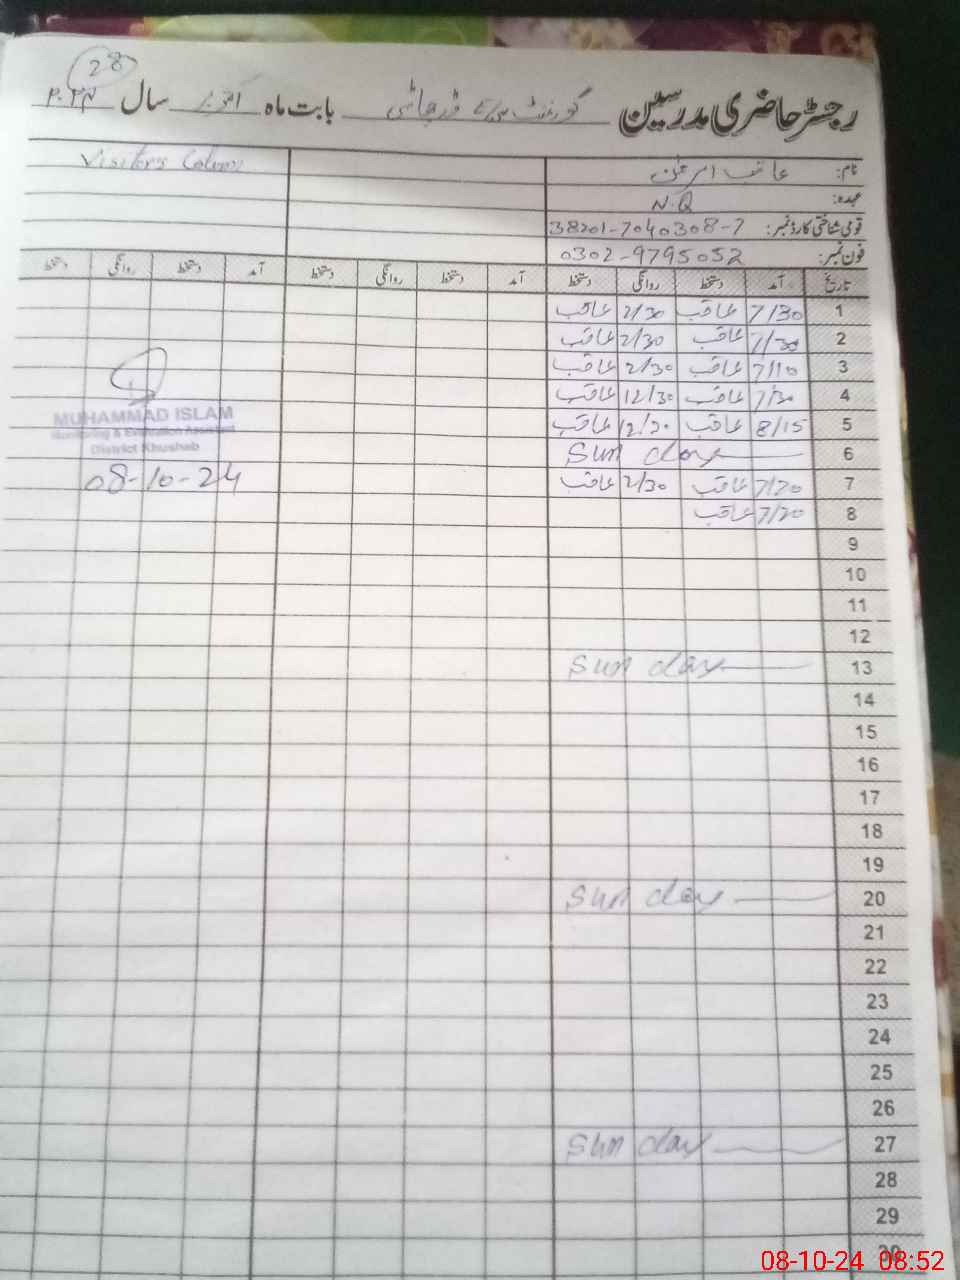 28
رجسٹر حاضری مدرسین گورنمنٹ بابت ماہ اکتوبر سال ۲۰۲۴
نام: عاقب
Visitors Column
عہدہ: N.Q
قومی شناختی کارڈ نمبر: 38201-7040308-7
فون نمبر: 0302-9795052
تاریخ آمد دستخط روانگی دستخط آمد دستخط روانگی دستخط آمد دستخط روانگی دستخط
1 7/30 عاقب 2/30 عاقب
2 7/30 عاقب 2/30 عاقب
3 7/10 عاقب 2/30 عاقب
4 7/30 عاقب 12/30 عاقب
5 8/15 عاقب 12/30 عاقب
6 Sunday
7 7/20 عاقب 2/30 عاقب
8 7/20 عاقب
MUHAMMAD ISLAM
Monitoring & Evaluation Assistant
District Khushab
08-10-24
9
10
11
12
13 Sunday
14
15
16
17
18
19
20 Sunday
21
22
23
24
25
26
27 Sunday
28
29
30
08-10-24 08:52